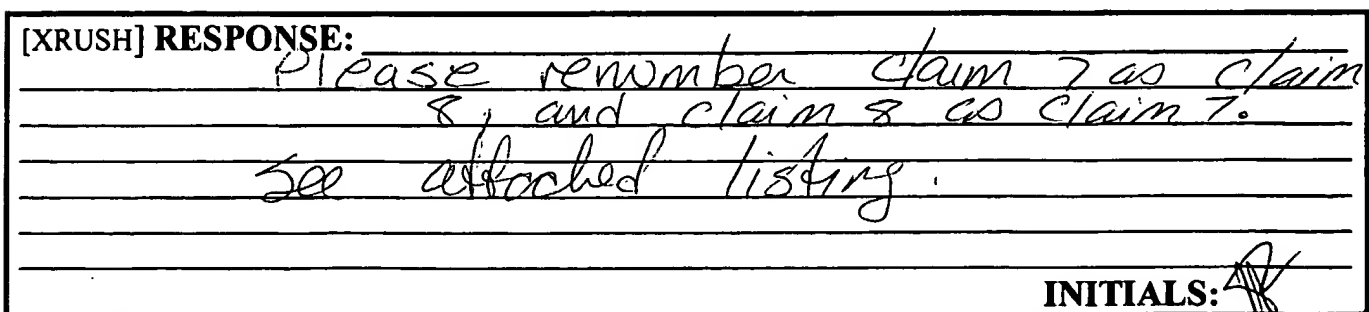 [XRUSH] RESPONSE:
Please renumber claim 7 as claim
8, and claim 8 as claim 7.
See attached listing.
INITIALS: